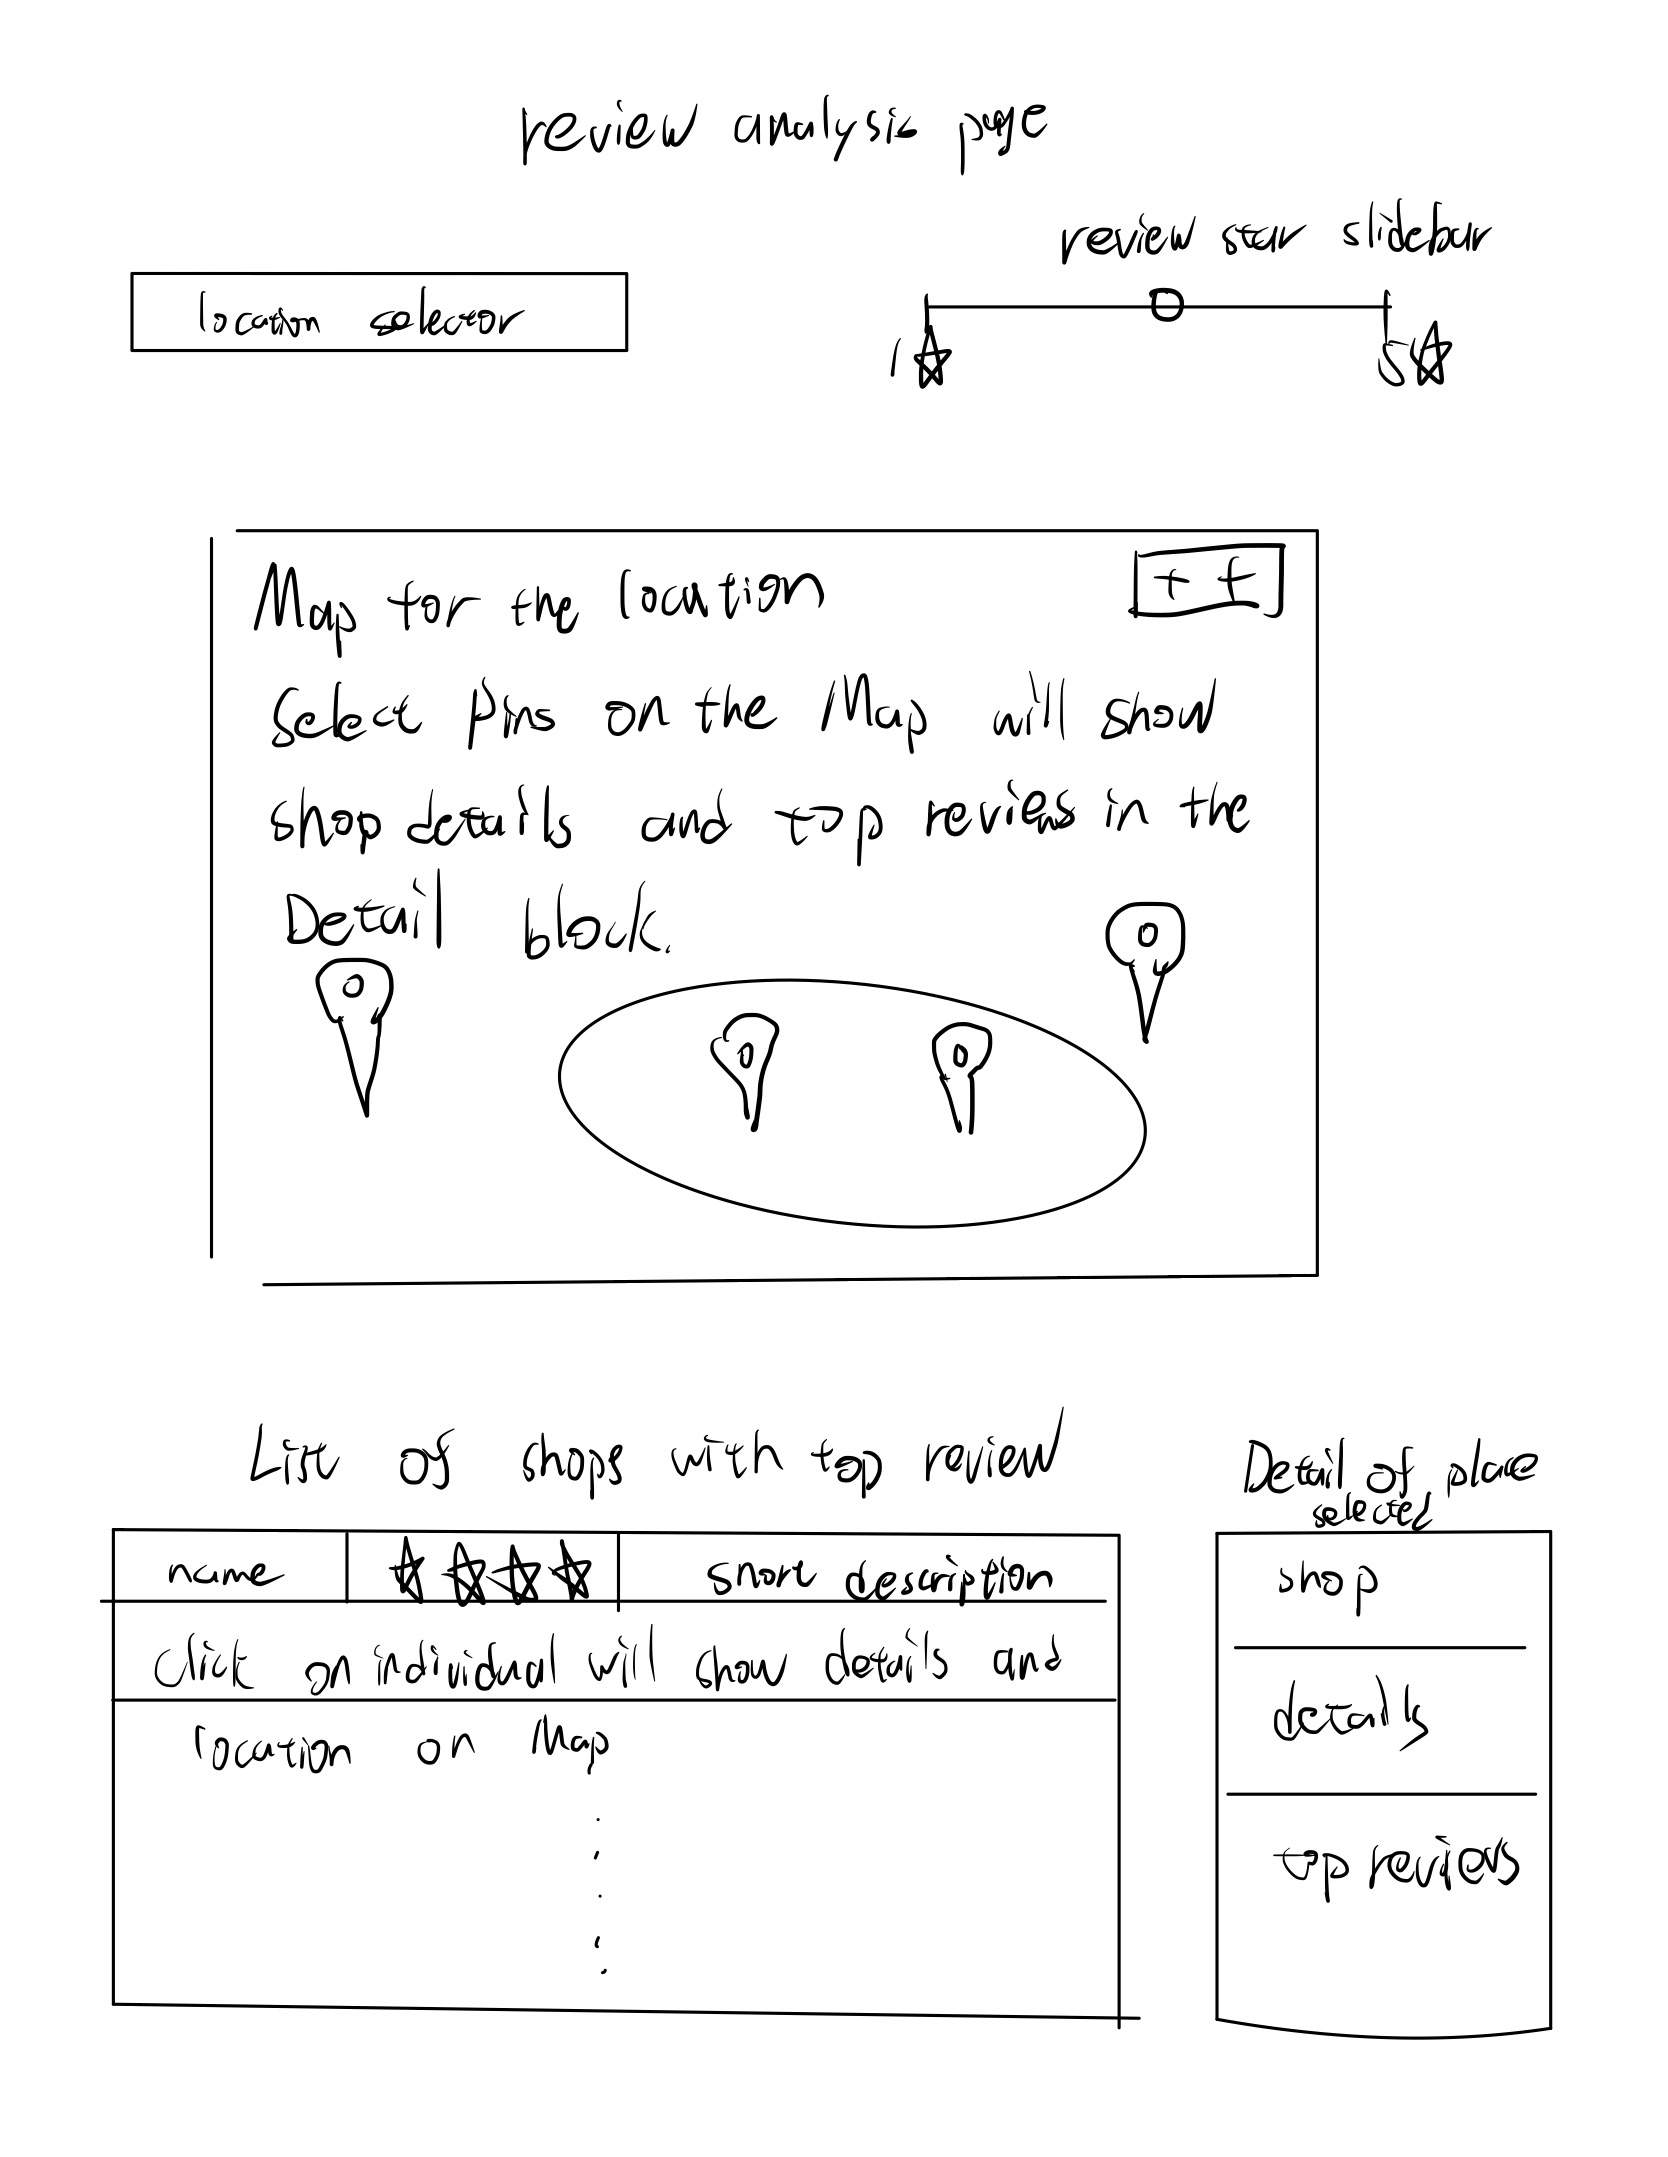 review analysis page
review star slidebar
location selector
1☆ 5☆
Map for the location
+ +
Select Pins on the Map will show
shop details and top reviews in the
Detail block.
List of shops with top review
Detail of place
selected
name ☆☆☆☆ short description
click on individual will show details and
location on Map
shop
details
top reviews